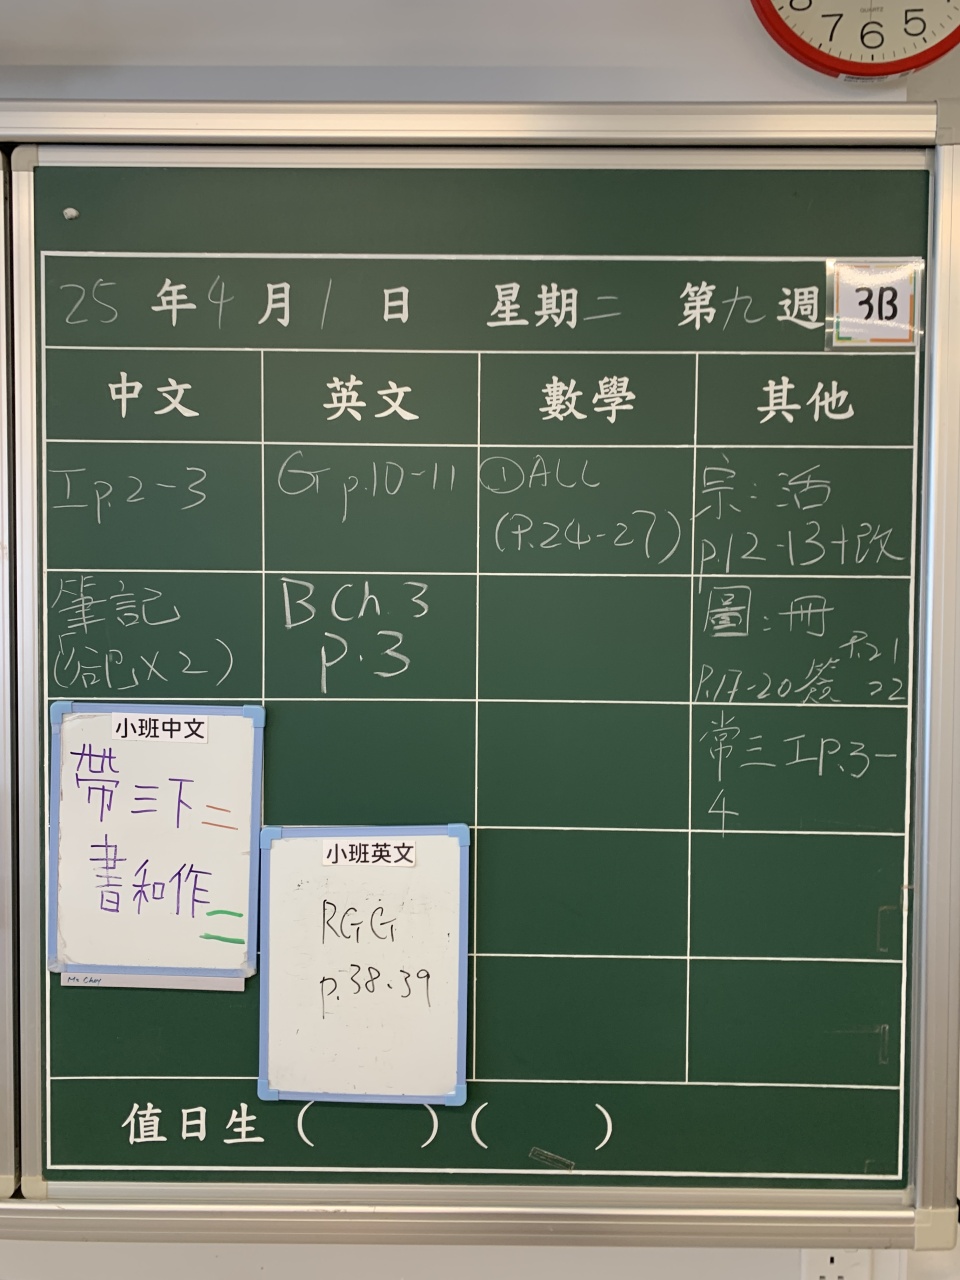 8 7 6 5
25年4月1日 星期二 第九週 3B
中文 英文 數學 其他
工p.2-3
G p.10-11
①ALL
(P.24-27)
宗:活
p.12-13+改
筆記
x2)
B Ch.3
p.3
圖:冊
P.17-20簽 P.21
22
常三工P.3-
4
小班中文
帶三下
書和作
Ms Choy
小班英文
RG G
p.38-39
值日生 ( ) ( )